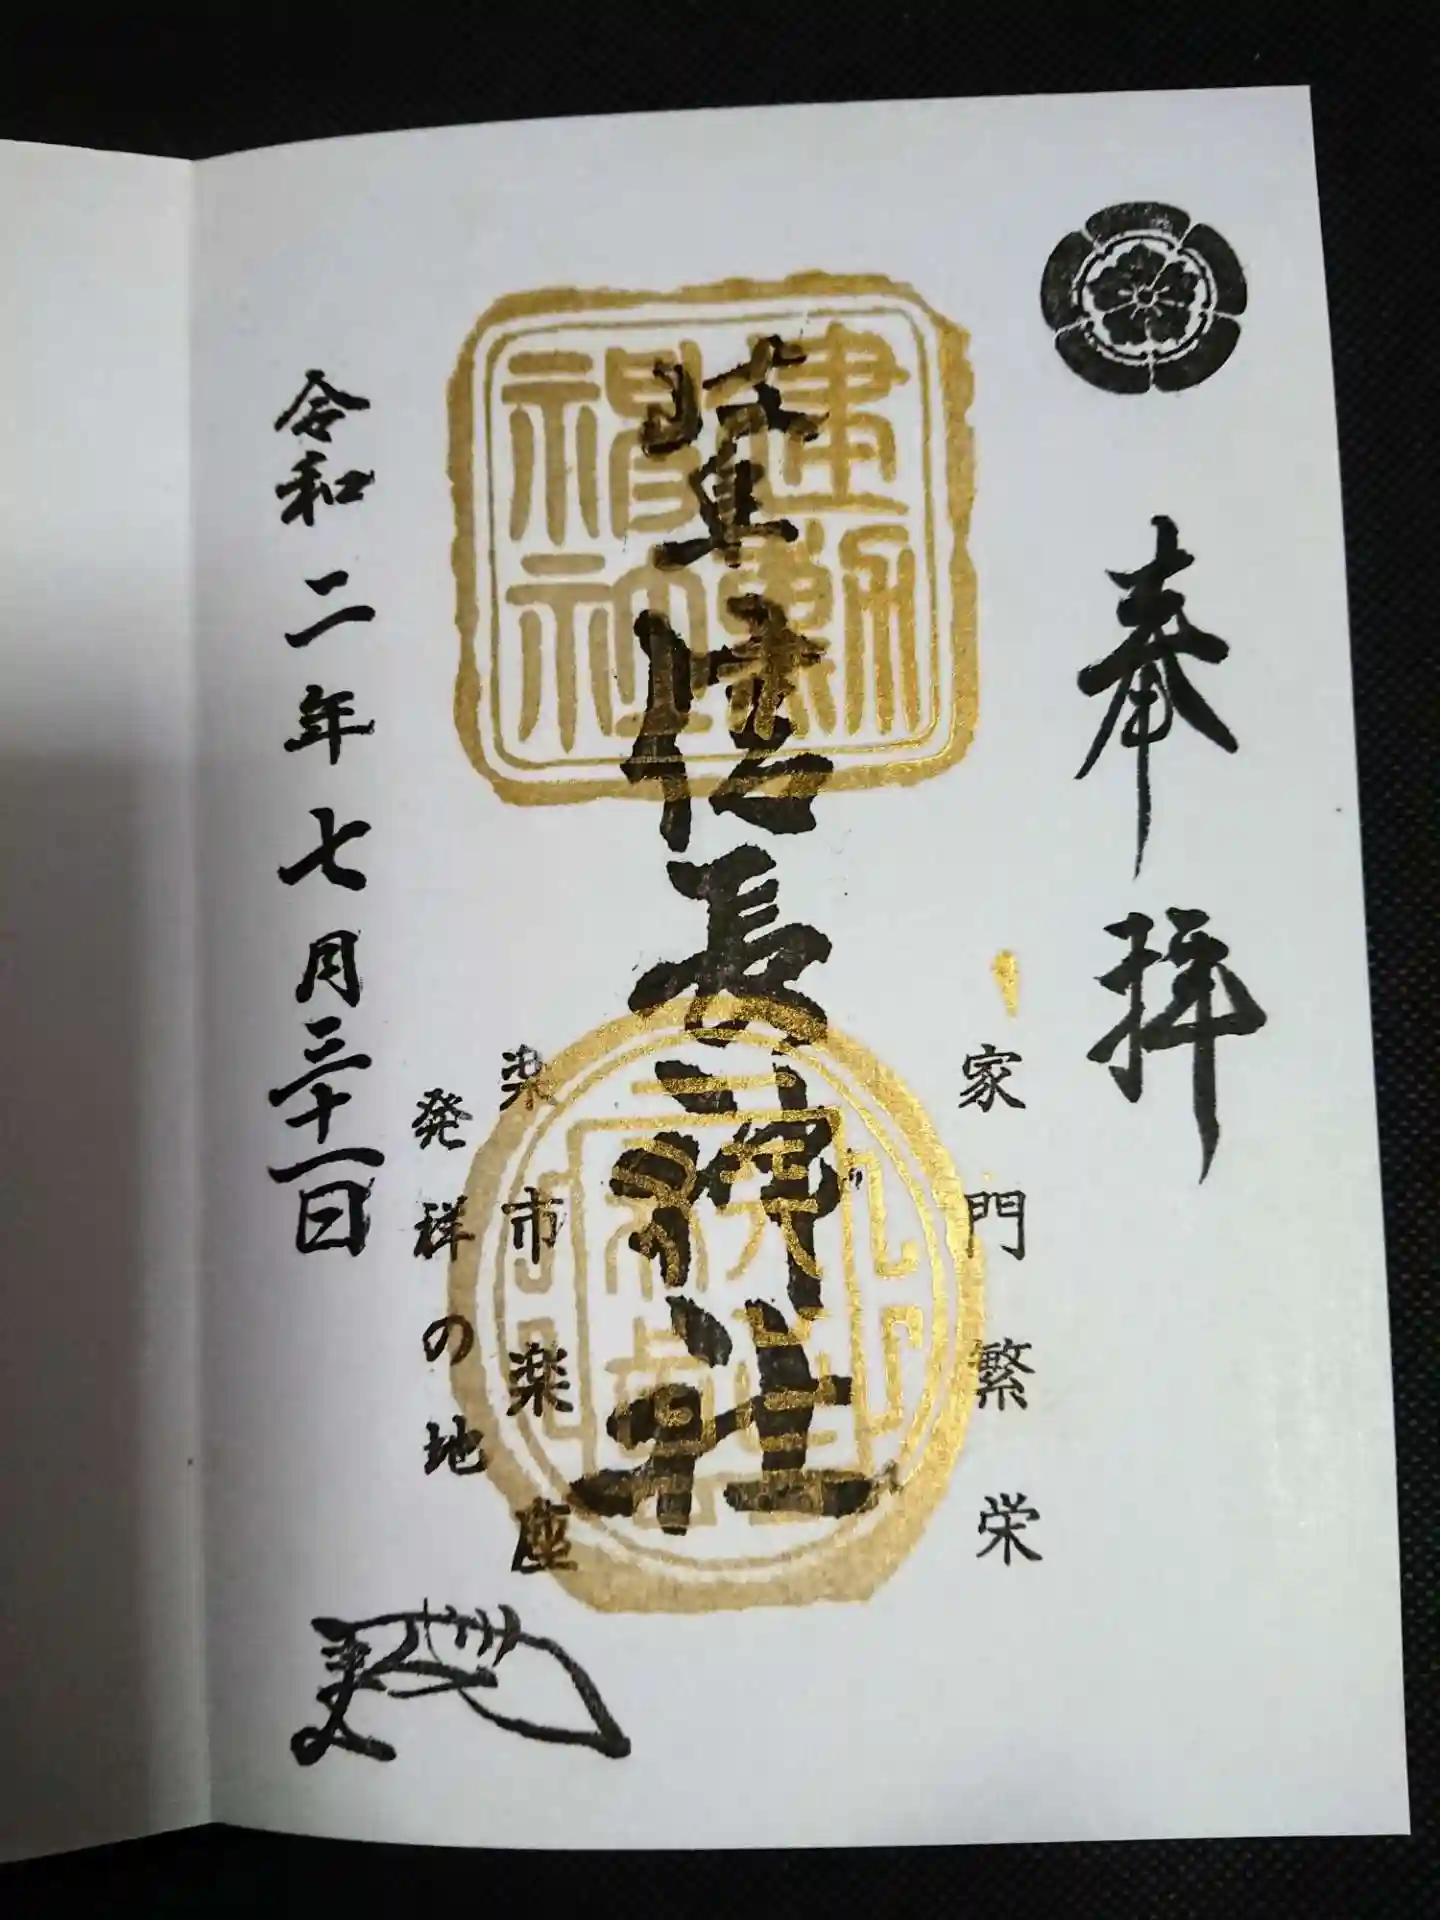 奉拝
家門繁栄
建勲神社
信長神社
楽市楽座
発祥の地
令和二年七月三十一日